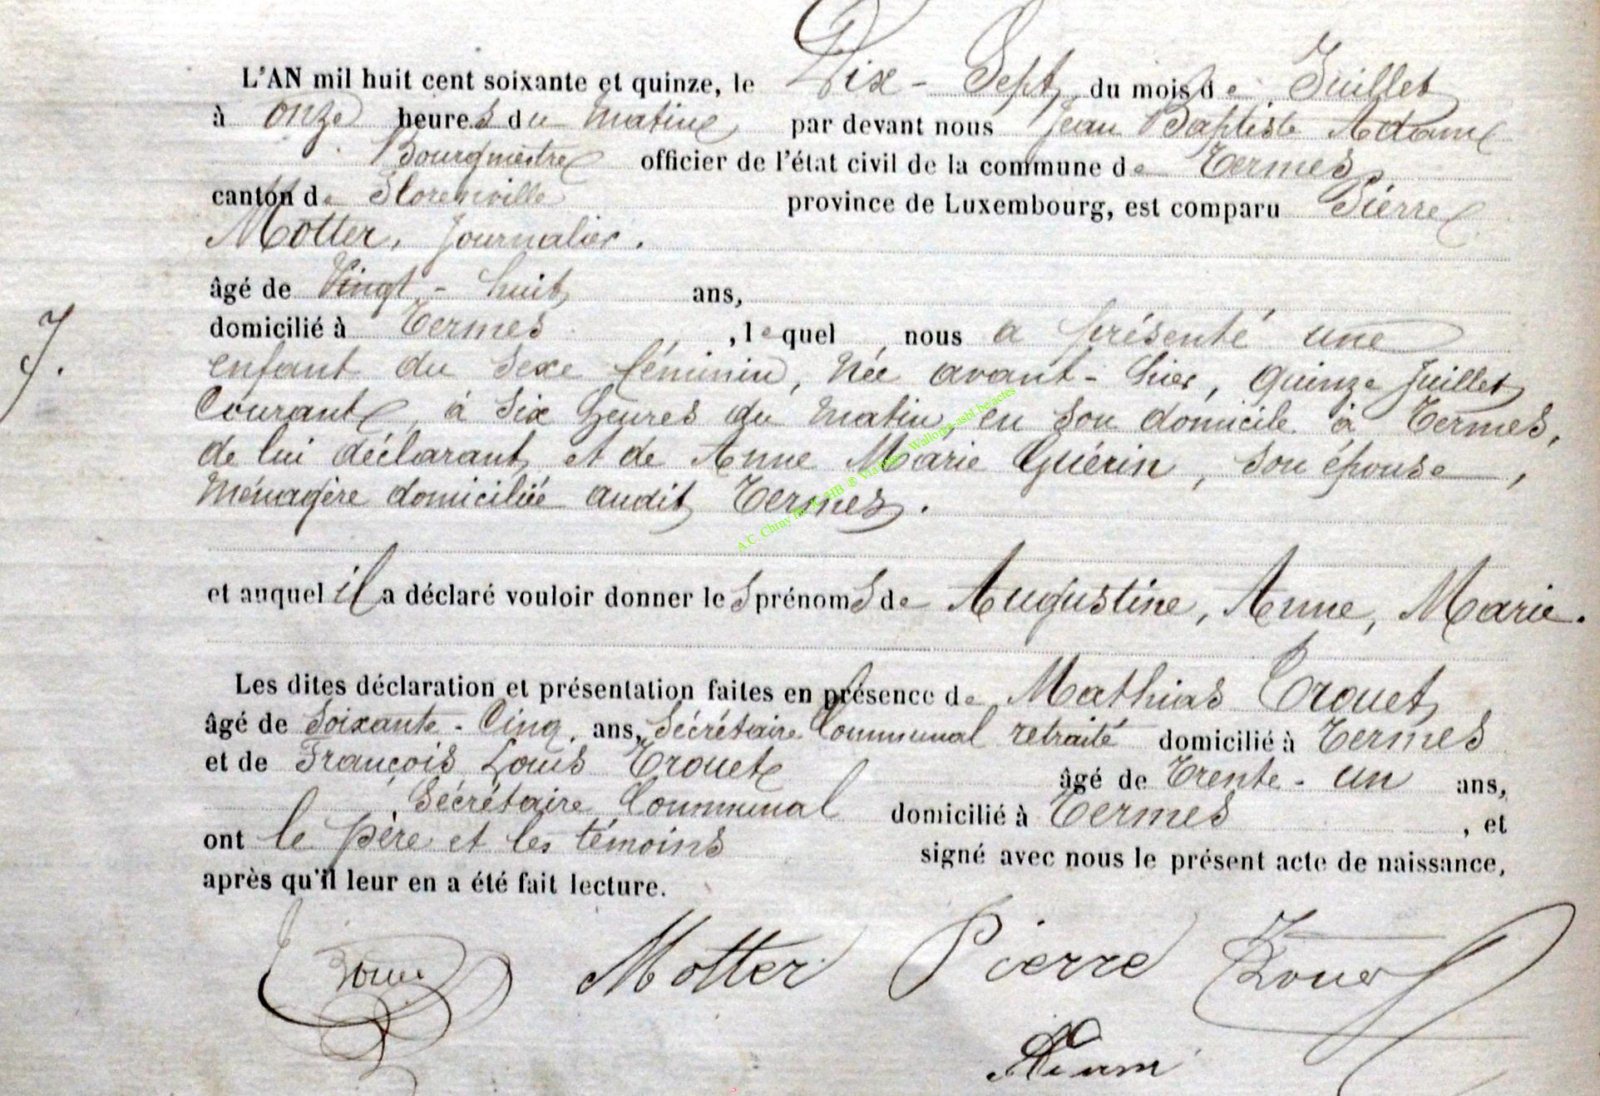 L'AN mil huit cent soixante et quinze, le Dix-Sept, du mois de Juillet
à onze heures du matin par devant nous Jean Baptiste Adam
Bourgmestre officier de l'état civil de la commune de Termes,
canton de Florenville province de Luxembourg, est comparu Pierre
Motter, journalier.
âgé de Vingt-huit ans,
domicilié à Termes, lequel nous a présenté une
7.
enfant du sexe féminin, née avant-hier, quinze juillet
courant, à six heures du matin, en son domicile à Termes,
de lui déclarant, et de Anne Marie Guérin, son épouse,
ménagère domiciliée audit Termes.
A.C. Chiny
et auquel il a déclaré vouloir donner les prénoms de Augustine, Anne, Marie.
Les dites déclaration et présentation faites en présence de Mathias Trouet,
âgé de soixante-cinq, ans, secrétaire Communal retraité domicilié à Termes
et de François Louis Trouet âgé de Trente-un ans,
secrétaire Communal domicilié à Termes, et
ont le père et les témoins signé avec nous le présent acte de naissance,
après qu'il leur en a été fait lecture.
Motter Pierre Trouet
Adam